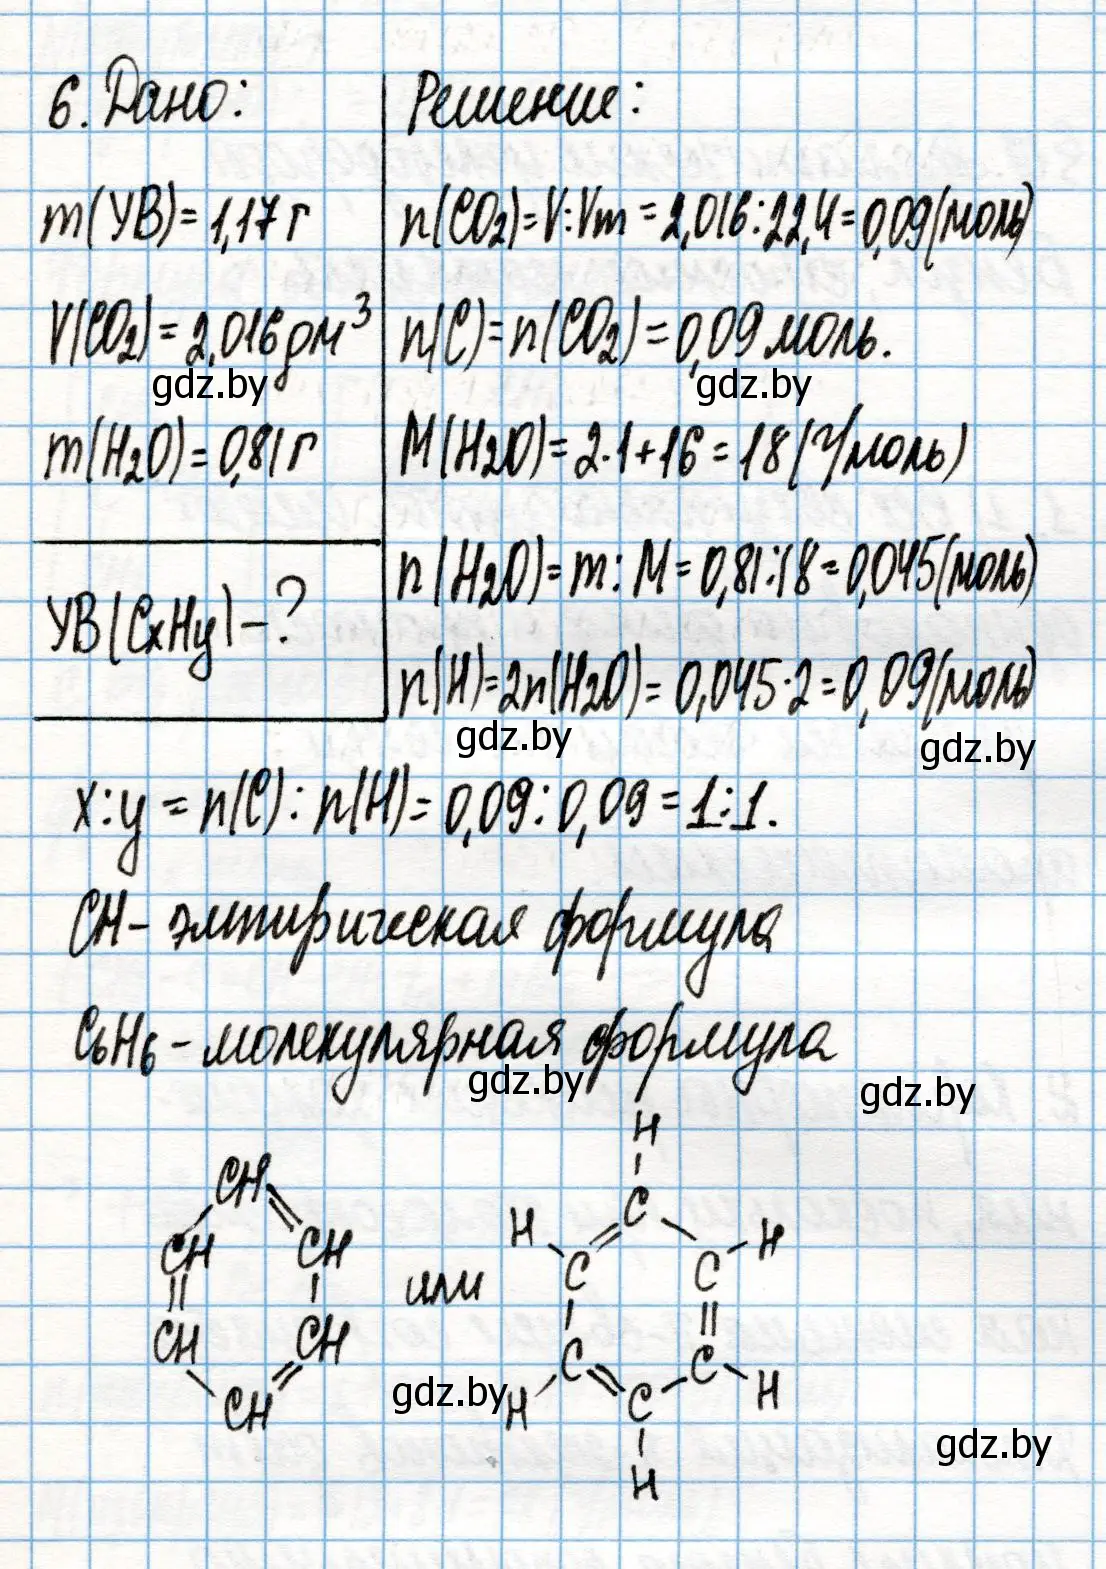 6. Дано:
m(УВ)=1,17 г
V(CO₂)=2,016 дм³
gdz.by
m(H₂O)=0,81 г
УВ(CxHy)-?
Решение:
n(CO₂)=V:Vm=2,016:22,4=0,09(моль)
n(C)=n(CO₂)=0,09 моль.
gdz.by
M(H₂O)=2·1+16=18(г/моль)
n(H₂O)=m:M=0,81:18=0,045(моль)
n(H)=2n(H₂O)=0,045·2=0,09(моль)
gdz.by
gdz.by
x:y=n(C):n(H)=0,09:0,09=1:1.
CH-эмпирическая формула
C₆H₆-молекулярная формула
gdz.by
gdz.by
CH
CH
CH
CH
CH
CH
или
H
C
H
H
C
C
C
C
H
H
C
H
gdz.by
gdz.by